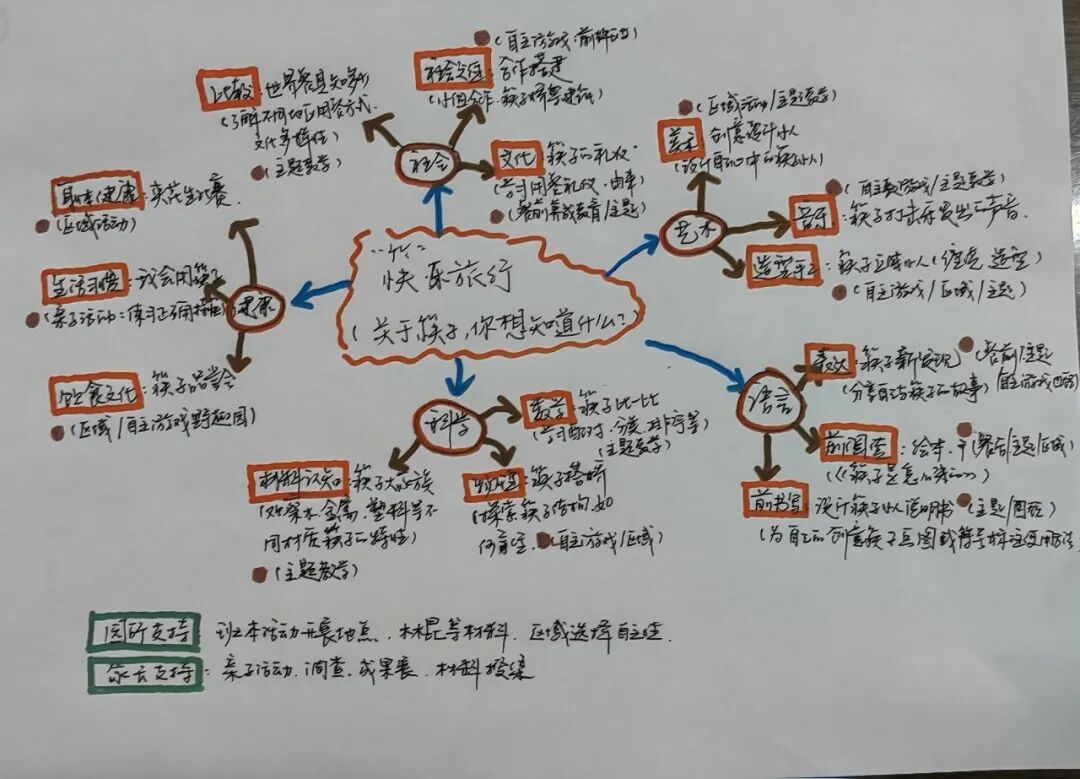 (自主游戏:前
社会交往:合作搭建
(小组合作.筷子桥等建筑
比较:世界餐具知多少
(了解不同地区用餐方式.
文化多样性)
(主题教学)
社会
文化:筷子的礼仪.
(学习用餐礼仪.由来)
(餐前养成教育/主题)
(区域活动/主题教学)
美术:创意筷子小人
(设计自己心中的筷子小人)
艺术
(自主游戏/主题教学)
音乐:筷子打击乐发出的声音.
造型手工:筷子立体小人(
造型)
(自主游戏/区域/主题)
身体健康:夹花生比赛.
(区域活动)
生活习惯:我会用筷子
(亲子活动:练习正确用
健康
饮食文化:筷子品尝会
(区域/自主游戏野趣园)
"筷"
快乐旅行
(关于筷子,你想知道什么?)
科学
数学:筷子比一比
(学习配对.分类.排序等)
主题教学)
材料认知:筷子大家族
(观察木.金属.塑料等不
同材质筷子的特性)
(主题教学)
筷子搭桥
(探索筷子结构,如
何
(自主游戏/区域)
语言
表达:筷子新发现
(餐前/主题
自主游戏
(分享自己与筷子的故事)
前阅读:绘本.
(餐后/主题/区域)
(《筷子是怎么来的》)
前书写:设计筷子小人说明书
(主题/
(为自己的创意筷子画图或符号标注使用方法
园所支持:班本活动开展地点.木棍等材料.区域选择自主性.
家长支持:亲子活动.调查.成果展.材料搜集